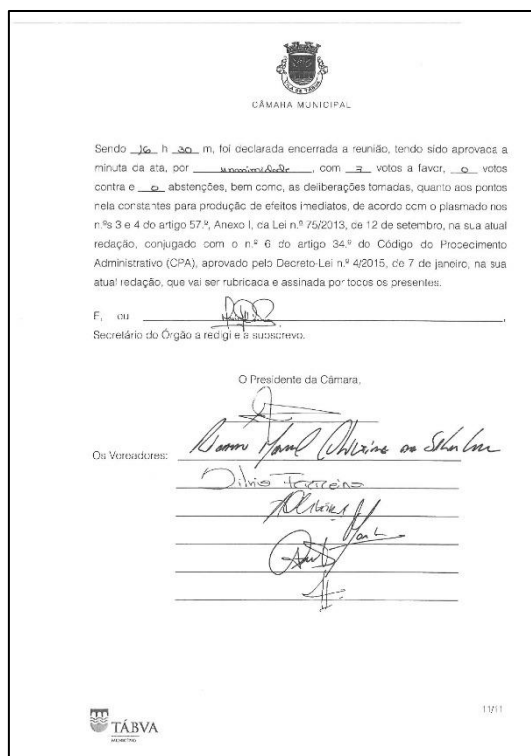 VILA DE TÁBUA
CÂMARA MUNICIPAL
Sendo 16 h 30 m, foi declarada encerrada a reunião, tendo sido aprovada a
minuta da ata, por unanimidade, com 7 votos a favor, 0 votos
contra e 0 abstenções, bem como, as deliberações tomadas, quanto aos pontos
nela constantes para produção de efeitos imediatos, de acordo com o plasmado nos
n.ºs 3 e 4 do artigo 57.º, Anexo I, da Lei n.º 75/2013, de 12 de setembro, na sua atual
redação, conjugado com o n.º 6 do artigo 34.º do Código do Procedimento
Administrativo (CPA), aprovado pelo Decreto-Lei n.º 4/2015, de 7 de janeiro, na sua
atual redação, que vai ser rubricada e assinada por todos os presentes.
E, eu ,
Secretário do Órgão a redigi e a subscrevo.
O Presidente da Câmara,
Os Vereadores:
Silvio Ferreira
TÁBVA
MUNICÍPIO
11/11